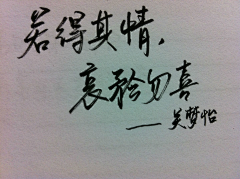 若得其情，
哀矜勿喜
——吴梦怡